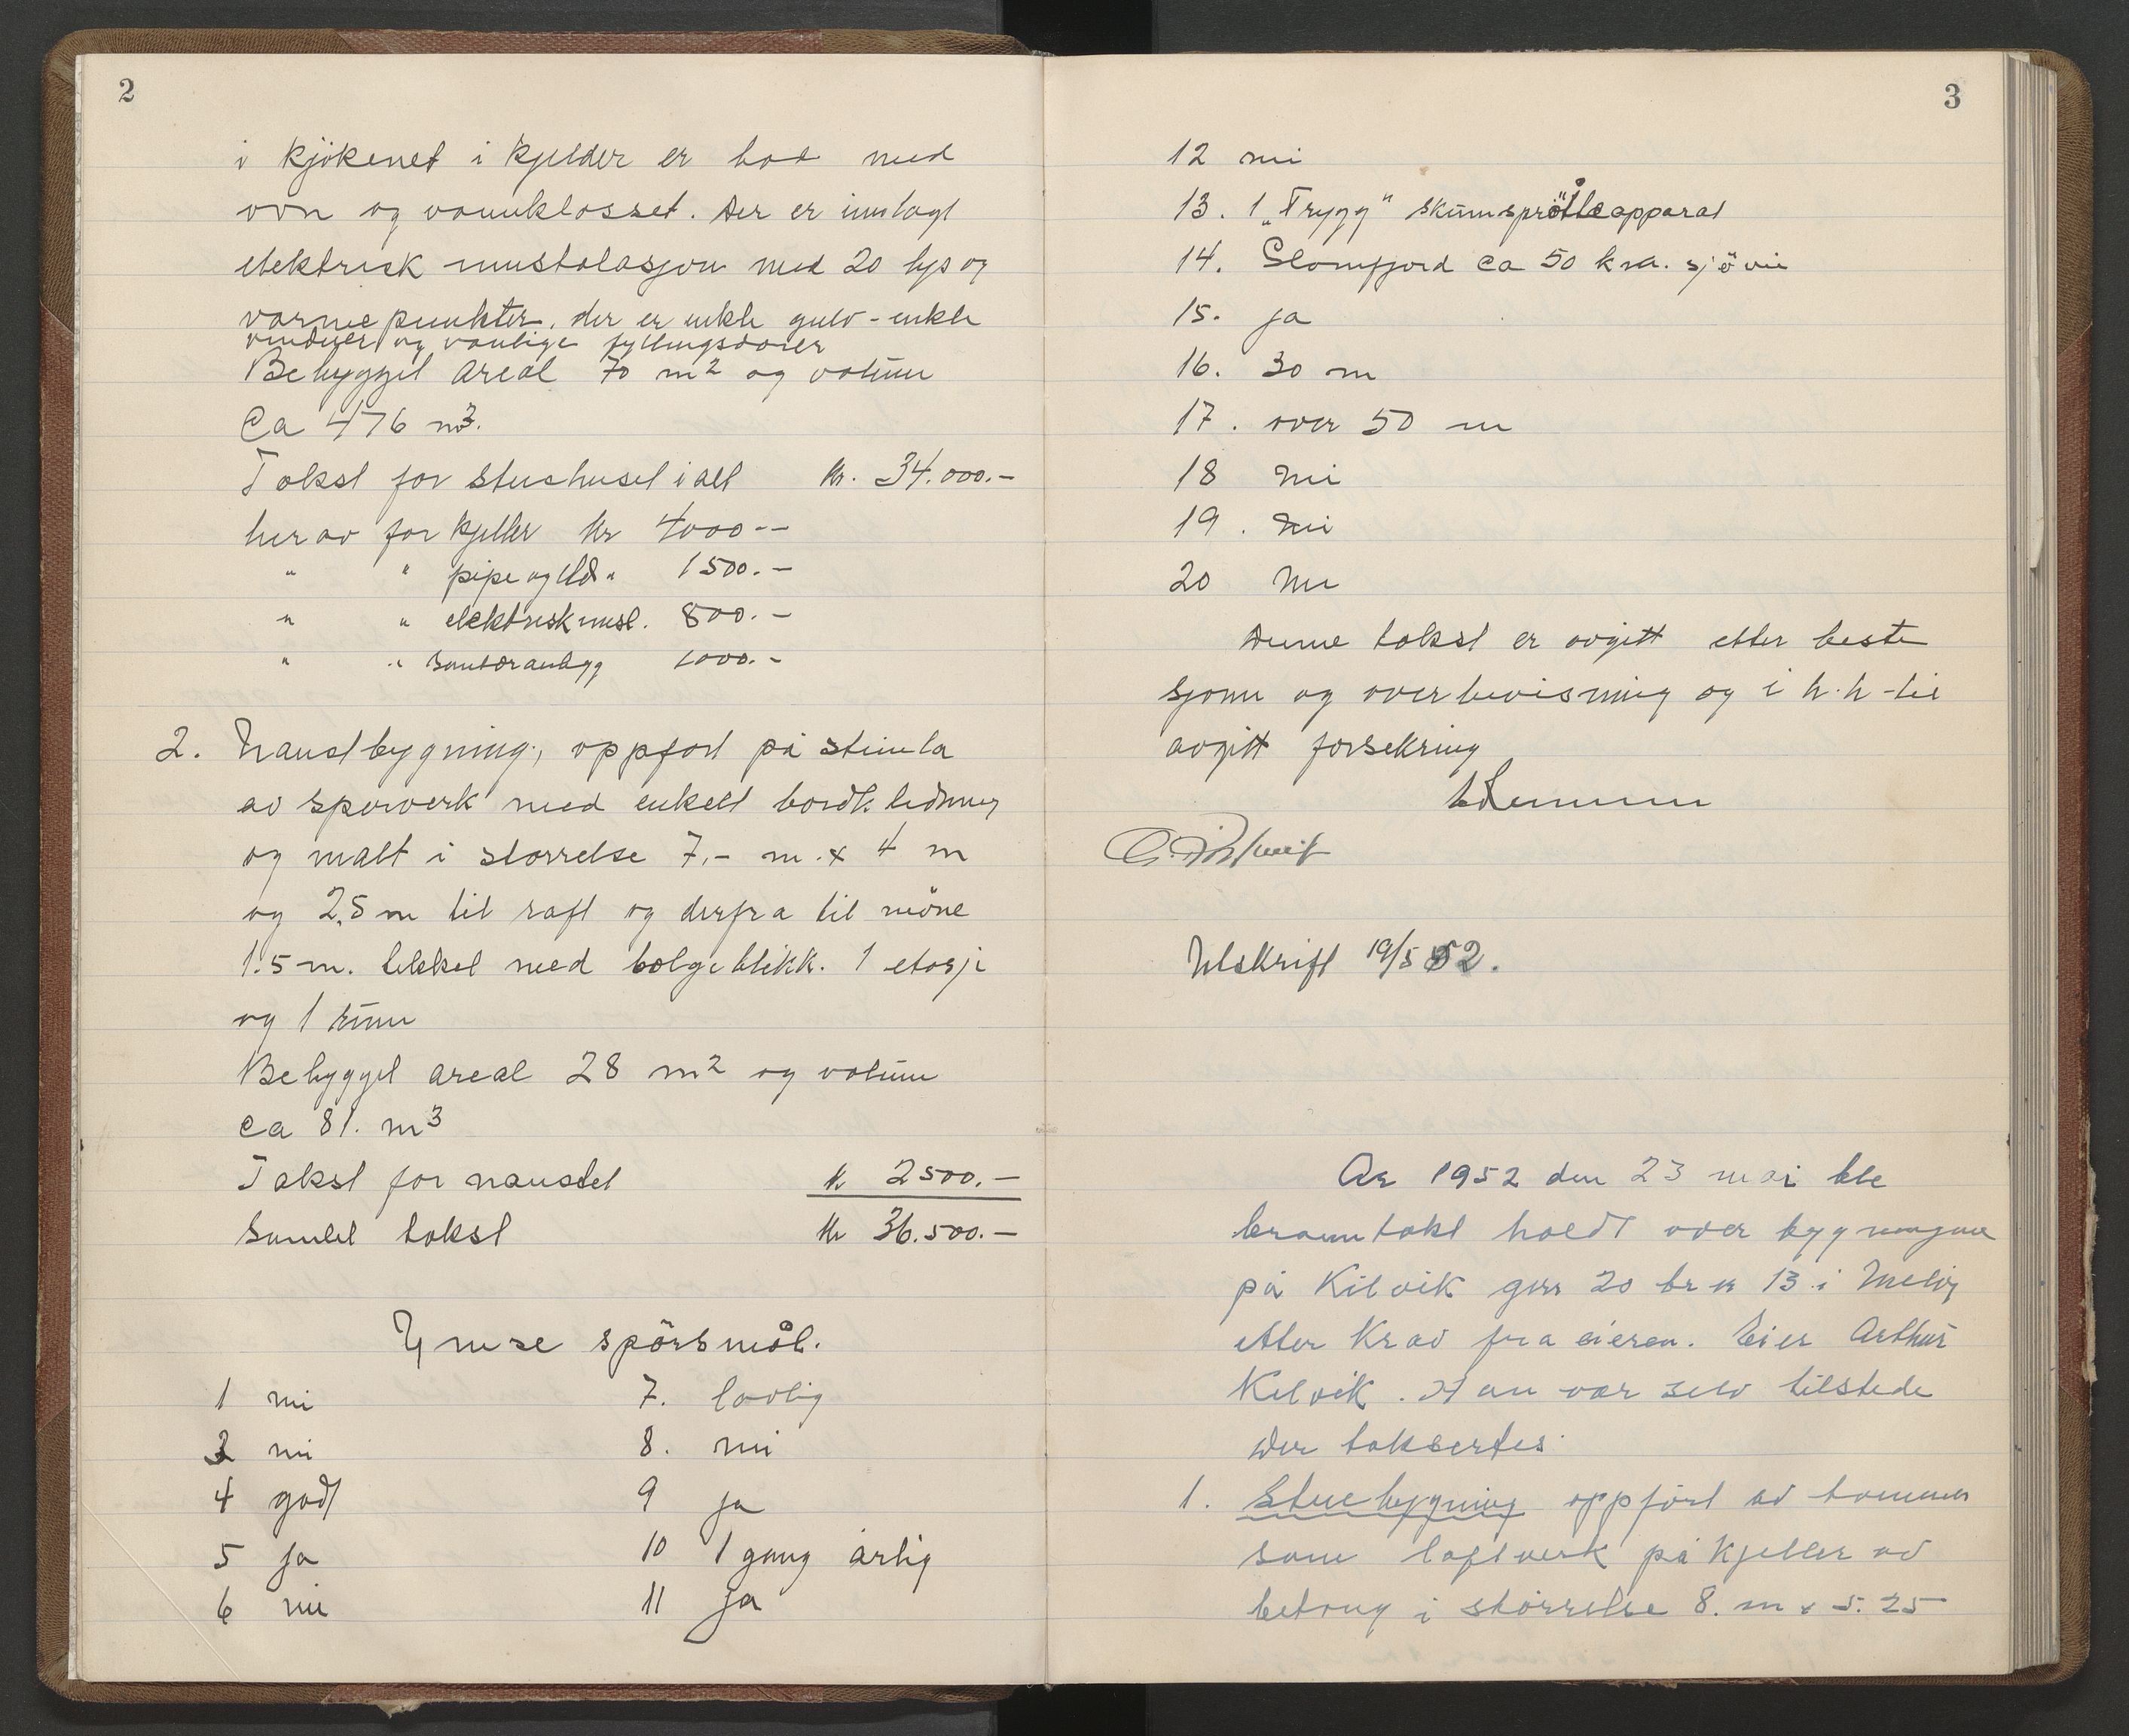 2
i kjökenet i kjelder er bad med
ovn og vannklosset. Der er innlagt
elektrisk innstalasjon med 20 lys og
varmepunkter. der er enkle gulv - enkle
vinduer og vanlige fyllingsdorer
Bebygget areal 70 m² og volum
Ca 476 m³.
Takst for stushuset i alt kr. 34.000.-
herav for kjeller kr 4000--
" " pipe og ild " 1500.-
" " elektrisk inst. 800.-
" " Sanitæranlegg 1000.-
2. Naustbygning, oppfort på steinla
av sperverk med enkelt bordkledning
og malt i storrelse 7,- m. x 4 m
og 2,5 m til raft og derfra til möne
1.5 m. tekket med bolgeblikk. 1 etasje
og 1 rum
Bebygget areal 28 m² og volum
ca 81. m³
Takst for naustet kr 2500.-
Samlet takst kr 36.500.-
Ymse spörsmål.
1 nei 7. lovlig
3 nei 8. nei
4 godt 9 ja
5 ja 10 1 gang årlig
6 nei 11 ja
3
12 nei
13. 1 „Trygg" skumspröiteapparat
14. Glomfjord ca 50 km. sjövei
15. ja
16. 30 m
17. over 50 m
18 nei
19. nei
20 nei
Denne takst er avgitt etter beste
sjonn og overbevisning og i h.h-til
avgitt forsekring
Utskrift 19/5 52.
År 1952 den 23 mai ble
branntakst holdt over bygningene
på Kilvik gnr 20 br nr 13 i Meløy
etter krav fra eieren. Eier Arthur
Kilvik. Han var selv tilstede
Der taksertes.
1. Stuebygning oppfört av tommer
som laftverk på kjeller av
betong i störrelse 8. m x 5.25